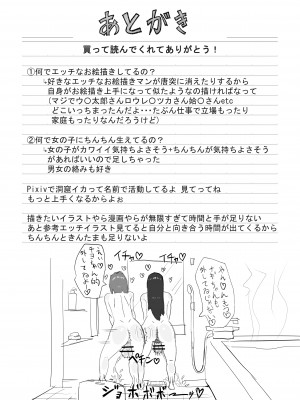 あとがき
買って読んでくれてありがとう！
①何でエッチなお絵描きしてるの？
→好きなエッチなお絵描きマンが唐突に消えたりするから
自身がお絵描き上手になって似たようなの描ければなって
（マジでウ〇太郎さんロウレ〇ツカさん給〇さんetc
どこいっちまったんだよ・・・たぶん仕事で立場もったり
家庭もったりなんだろうけど）
②何で女の子にちんちん生えてるの？
→女の子がカワイイ気持ちよさそう+ちんちんが気持ちよさそう
があればいいので足しちゃった
男女の絡みも好き
Pixivで洞窟イカって名前で活動してるよ 見てってね
もっと上手くなるからよぉ
描きたいイラストやら漫画やらが無限すぎて時間と手が足りない
あと参考エッチイラスト見てると自分と向き合う時間が出てくるから
ちんちんときんたまも足りないよ
イチャ♡
イチャ♡
ペチン♡
ジョボボボーッ♡